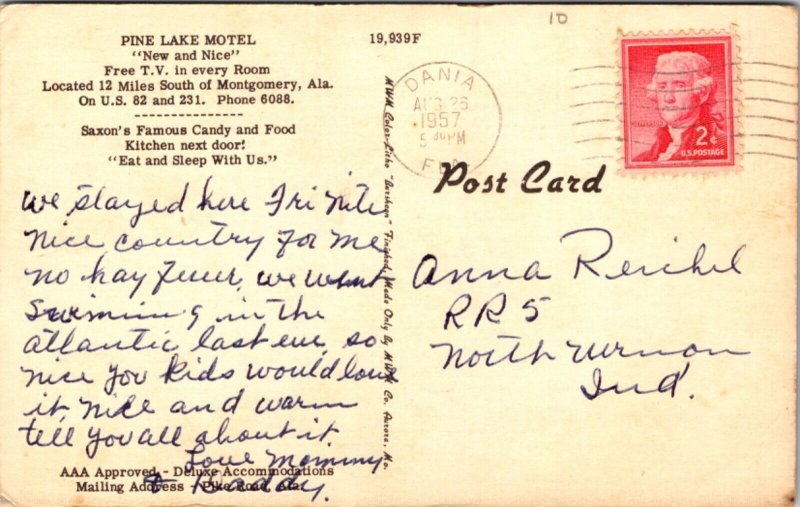 PINE LAKE MOTEL
"New and Nice"
Free T.V. in every Room
Located 12 Miles South of Montgomery, Ala.
On U.S. 82 and 231. Phone 6088.
Saxon's Famous Candy and Food
Kitchen next door!
"Eat and Sleep With Us."
we stayed here Fri nite
nice country for me
no hay fever, we went
swimming in the
atlantic last eve, so
nice you kids would love
it, nice and warm
tell you all about it.
Love Mommy
& Daddy.
AAA Approved - Deluxe Accommodations
Mailing Address - Pike Road, Ala.
19,939F
MWM Color-Litho "Finished, Made Only By MWM Co. Aurora, Mo.
10
DANIA
AUG 26
1957
5 PM
FLA
2¢
U.S. POSTAGE
Post Card
Anna Reichel
RR 5
North Vernon
Ind.